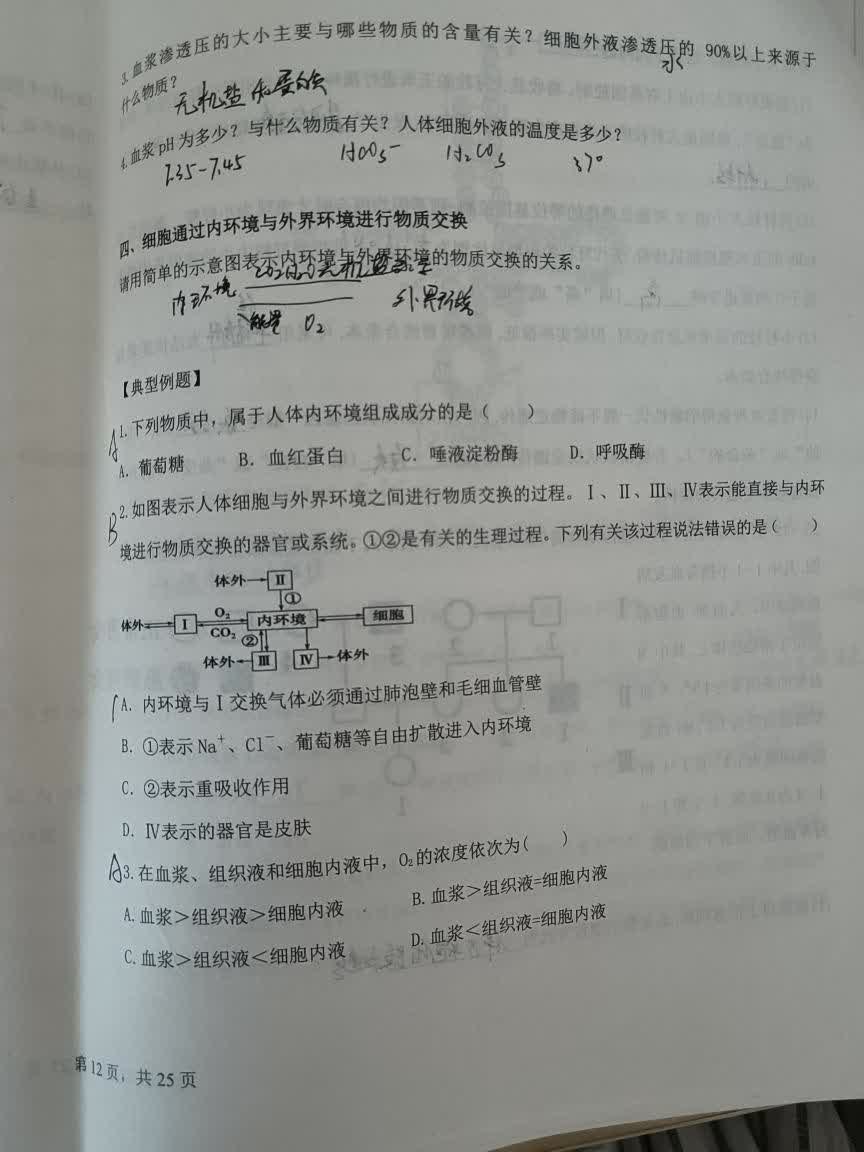 3.血浆渗透压的大小主要与哪些物质的含量有关？细胞外液渗透压的 90%以上来源于
水
什么物质？
无机盐 和 蛋白质
4.血浆 pH 为多少？与什么物质有关？人体细胞外液的温度是多少？
7.35-7.45 HCO3⁻ H2CO3 37°
四、细胞通过内环境与外界环境进行物质交换
请用简单的示意图表示内环境与外界环境的物质交换的关系。
内环境 外界环境
能量 O2
【典型例题】
A 1.下列物质中，属于人体内环境组成成分的是（ ）
A．葡萄糖 B．血红蛋白 C．唾液淀粉酶 D．呼吸酶
B 2.如图表示人体细胞与外界环境之间进行物质交换的过程。Ⅰ、Ⅱ、Ⅲ、Ⅳ表示能直接与内环
境进行物质交换的器官或系统。①②是有关的生理过程。下列有关该过程说法错误的是（ ）
体外 Ⅱ
①
体外 Ⅰ O₂ CO₂ 内环境 细胞
②
体外 Ⅲ Ⅳ 体外
A．内环境与Ⅰ交换气体必须通过肺泡壁和毛细血管壁
B．①表示 Na⁺、Cl⁻、葡萄糖等自由扩散进入内环境
C．②表示重吸收作用
D．Ⅳ表示的器官是皮肤
A 3.在血浆、组织液和细胞内液中，O₂的浓度依次为（ ）
A.血浆＞组织液＞细胞内液 B.血浆＞组织液=细胞内液
C.血浆＞组织液＜细胞内液 D.血浆＜组织液=细胞内液
第 12 页，共 25 页